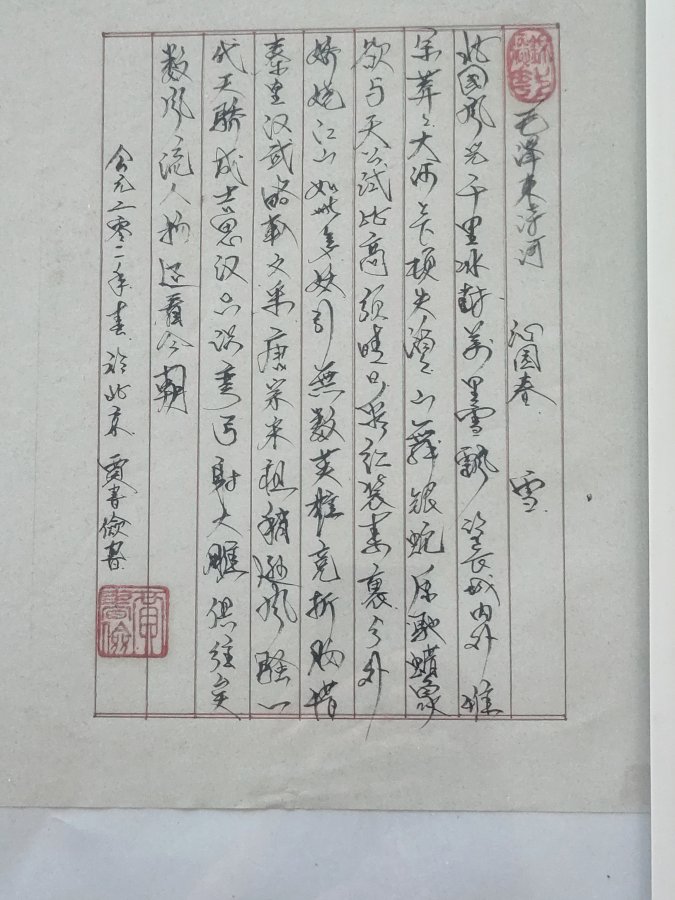 毛泽东诗词 沁园春 雪
北国风光千里冰封万里雪飘望长城内外惟
余莽々大河上下顿失滔々山舞银蛇原驰蜡象
欲与天公试比高须晴日看红装素裹分外
妖娆江山如此多娇引無数英雄竞折腰惜
秦皇汉武略输文采唐宗宋祖稍逊风骚一
代天骄成吉思汗只识弯弓射大雕俱往矣
数风流人物还看今朝
公元二零二年春於北京 書儉書